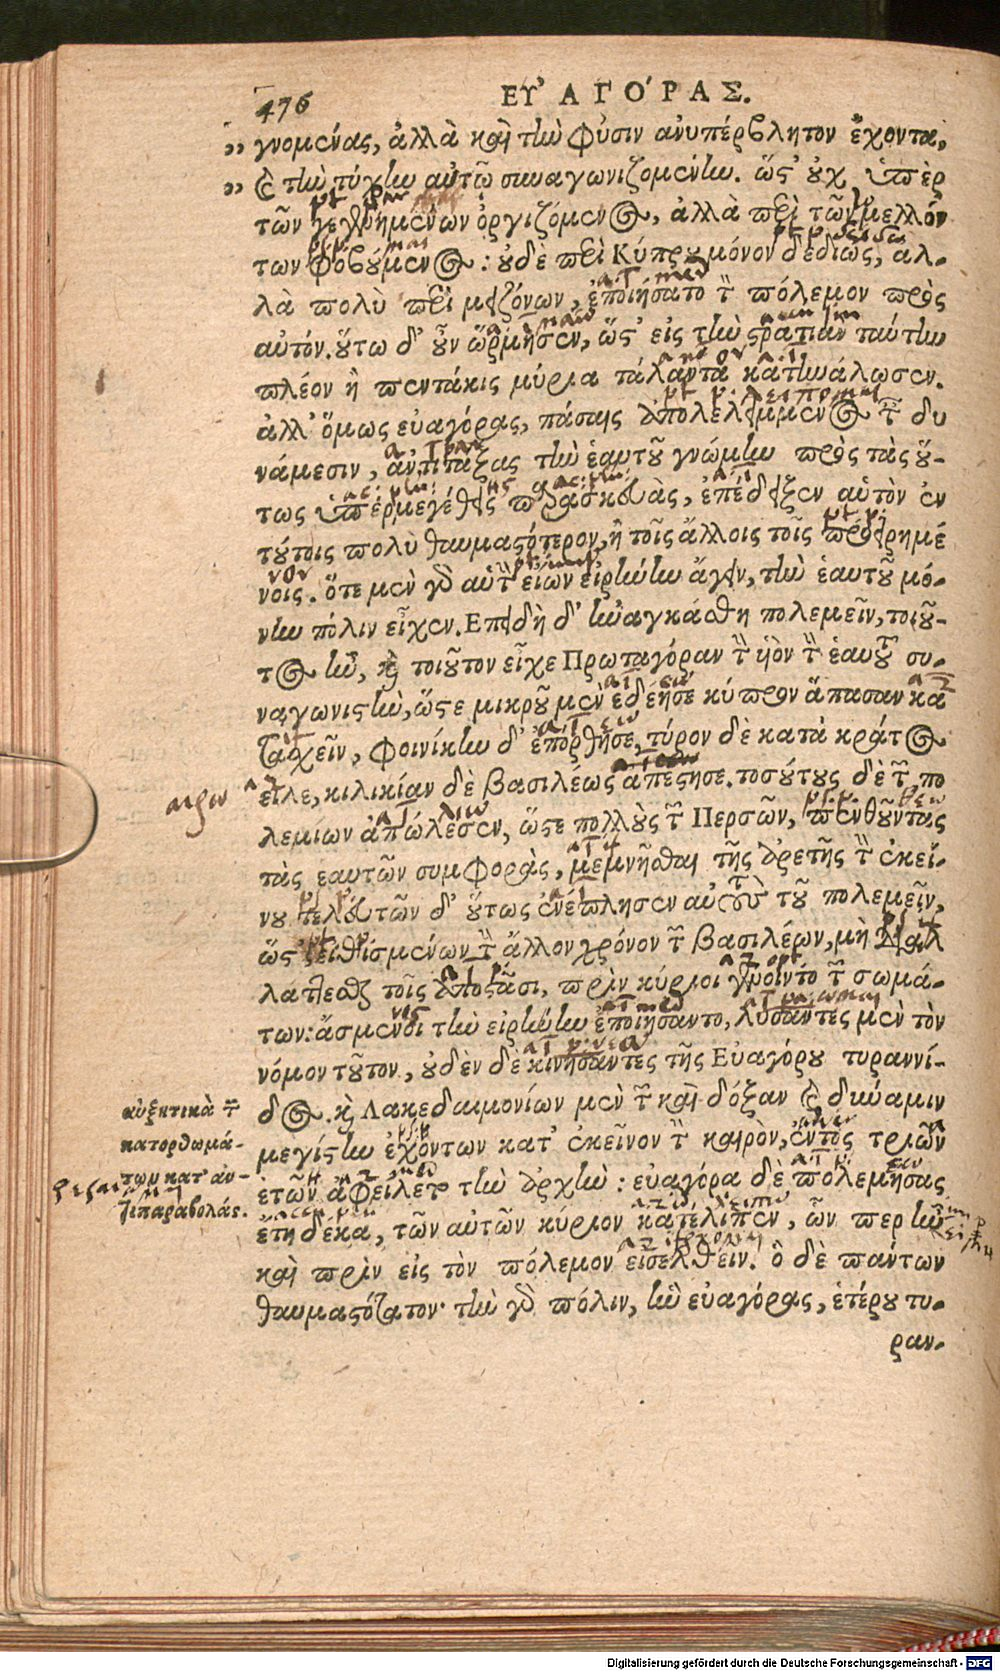 476
ΕΥ’ΑΓΟ΄ΡΑΣ.
γνομένας, ἀλλὰ καὶ τὴν φύσιν ἀνυπέρβλητον ἔχοντα,
καὶ τὴν τύχην αὐτῷ συναγωνιζομένην. ὥστ’ οὐχ ὑπὲρ
τῶν γεγενημένων ὀργιζόμενος, ἀλλὰ περὶ τῶν μελλόν
των φοβούμενος: οὐδὲ περὶ Κύπρου μόνον δεδιὼς, ἀλ-
λὰ πολὺ περὶ μειζόνων, ἐποιήσατο τὸν πόλεμον πρὸς
αὐτόν. οὕτω δ’ οὖν ὥρμησεν, ὥστ’ εἰς τὴν στρατιὰν ταύτην
πλέον ἢ πεντάκις μύρια τάλαντα κατηνάλωσεν.
ἀλλ’ ὅμως εὐαγόρας, πάσαις ἀπολελειμμένος ταῖς δυ
νάμεσιν, ἀντιτάξας τὴν ἑαυτοῦ γνώμην πρὸς τὰς οὕ-
τως ὑπερμεγέθεις παρασκευὰς, ἐπέδειξεν αὑτὸν ἐν
τούτοις πολὺ θαυμαστότερον, ἢ τοῖς ἄλλοις τοῖς προειρημέ
νοις. ὅτε μὲν γὰρ αὐτὸν εἴων εἰρήνην ἄγειν, τὴν ἑαυτοῦ μό-
νην πόλιν εἶχεν. Επειδὴ δ’ ἠναγκάσθη πολεμεῖν, τοιοῦ-
τος ἦν, καὶ τοιοῦτον εἶχε Πρωταγόραν τὸν υἱὸν τὸν ἑαυτοῦ συ-
ναγωνιστὴν, ὥστε μικροῦ μὲν ἐδέησε κύπρον ἅπασαν κα
τασχεῖν, φοινίκην δ’ ἐπόρθησε, τύρον δὲ κατὰ κράτος
εἷλε, κιλικίαν δὲ βασιλέως ἀπέστησε. τοσούτους δὲ τῶν πο
λεμίων ἀπώλεσεν, ὥστε πολλοὺς τῶν Περσῶν, πενθοῦντας
τὰς ἑαυτῶν συμφορὰς, μεμνῆσθαι τῆς ἀρετῆς τῆς ἐκεί-
νου τελευτῶν δ’ οὕτως ἐνέπλησεν αὐτοὺς τοῦ πολεμεῖν,
ὥστ’ εἰθισμένων τὸν ἄλλον χρόνον τῶν βασιλέων, μὴ διαλ
λάττεσθαι τοῖς ἀποστᾶσι, πρὶν κύριοι γένοιντο τῶν σωμά-
των: ἄσμενοι τὴν εἰρήνην ἐποιήσαντο, λύσαντες μὲν τὸν
νόμον τοῦτον, οὐδὲν δὲ κινήσαντες τῆς Εὐαγόρου τυραννί-
δος. καὶ Λακεδαιμονίων μὲν τῶν καὶ δόξαν καὶ δύναμιν
μεγίστην ἐχόντων κατ’ ἐκεῖνον τὸν καιρὸν, ἐντὸς τριῶν
ἐτῶν ἀφείλετο τὴν ἀρχὴν: εὐαγόρα δὲ πολεμήσας
ἔτη δέκα, τῶν αὐτῶν κύριον κατέλιπεν, ὧν περ ἦν
καὶ πρὶν εἰς τὸν πόλεμον εἰσελθεῖν. ὃ δὲ πάντων
θαυμαστότατον· τὴν γὰρ πόλιν, ἣν εὐαγόρας, ἑτέρου τυ-
ραν-
αἱρω
αὐξητικὰ τῶν
κατορθωμά-
των κατ’ ἀν-
τιπαραβολάς.
Digitalisierung gefördert durch die Deutsche Forschungsgemeinschaft - DFG